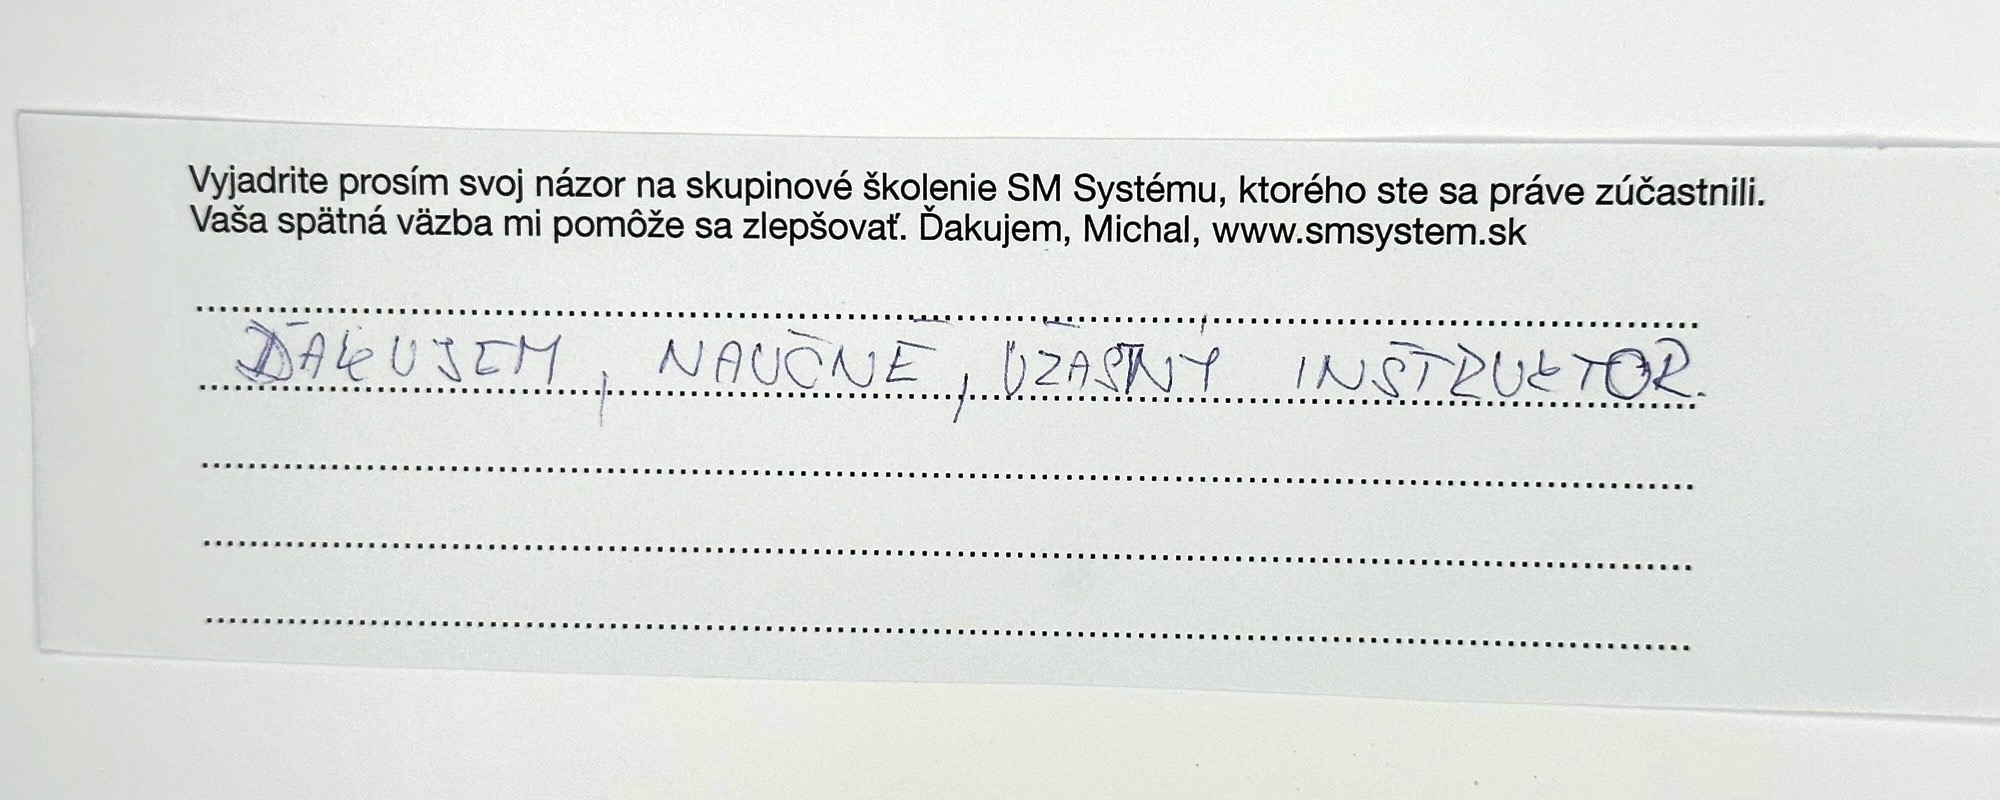 Vyjadrite prosím svoj názor na skupinové školenie SM Systému, ktorého ste sa práve zúčastnili.
Vaša spätná väzba mi pomôže sa zlepšovať. Ďakujem, Michal, www.smsystem.sk
ĎAKUJEM, NAUČNÉ, ÚŽASNÝ INŠTRUKTOR.